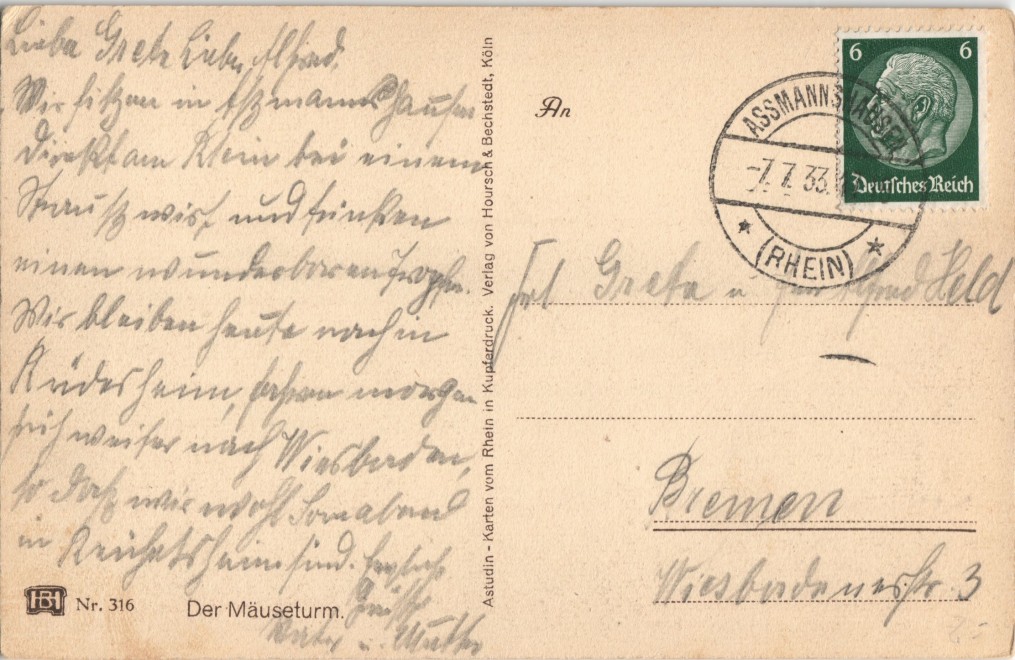 Liebe Grete Lieber Alfred.
Wir sitzen in Aßmannshausen
direkt am Rhein bei einem
Straußwirt und trinken
einen wunderbaren Tropfen.
Wir bleiben heute noch in
Rüdesheim, fahren morgen
früh weiter nach Wiesbaden,
so daß wir wohl Sonnabend
in sind. Herzliche
Grüße
Vater u. Mutter
Nr. 316 Der Mäuseturm.
Astudin - Karten vom Rhein in Kupferdruck. Verlag von Hoursch & Bechstedt, Köln
An
6 6
Deutsches Reich
ASSMANNSHAUSEN
-7.7.33.
(RHEIN)
Frl Grete u Alfred Held
Bremen
Wiesbadenerstr. 3